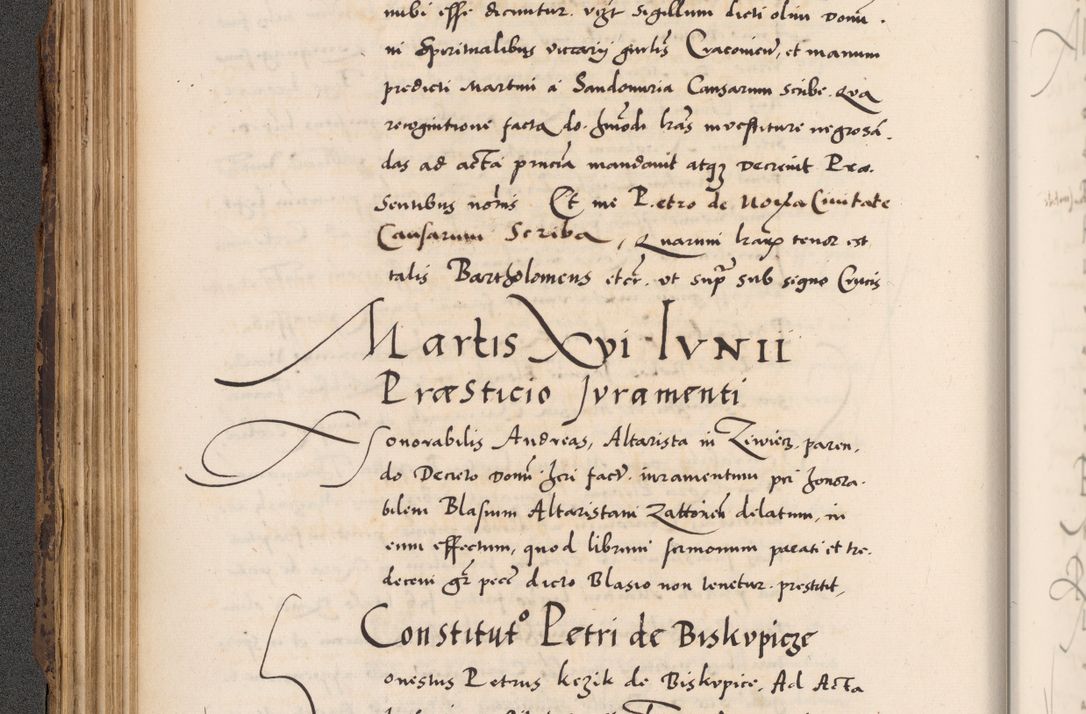 nubi esse dicuntur. vigr sigillum dicti olim Domi.
ni Spiritualibus vicarij gnrlis Cracovien, et manum
predicti Martini a Sandomiria Causarum scribe. Qua
recognitione facta do. hmodi lras investiture negrosa.
das ad acta pnncia mandavit atqz decrevit Pra.
Sentibus nobis Et me Petro de Noua Civitate
Causarum Scriba, Quarum lrarum tenor est
talis Bartholomeus etcr. vt supr sub signo Crucis
Martis Xvi IVNII
Præsticio Jvramenti
Honorabilis Andreas, Altarista in Zewiecz. paren.
do Decreto Domi hri fact. iuramentum pti honora.
bilem Blasium Altaristam Zattorien delatum, in
eum effectum, quod librum sermonum parati et tre.
decem gr pecc dicto Blasio non tenetur. prestitit,
Constituto Petri de Biskvpicze
Honestus Petrus kezik de Biskvpice, Ad Acta